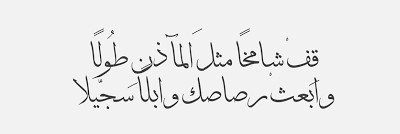 قفْ شامخًا مثلَ المآذن طُولًا
وابعثْ رصاصك وابلًا سجّيلا